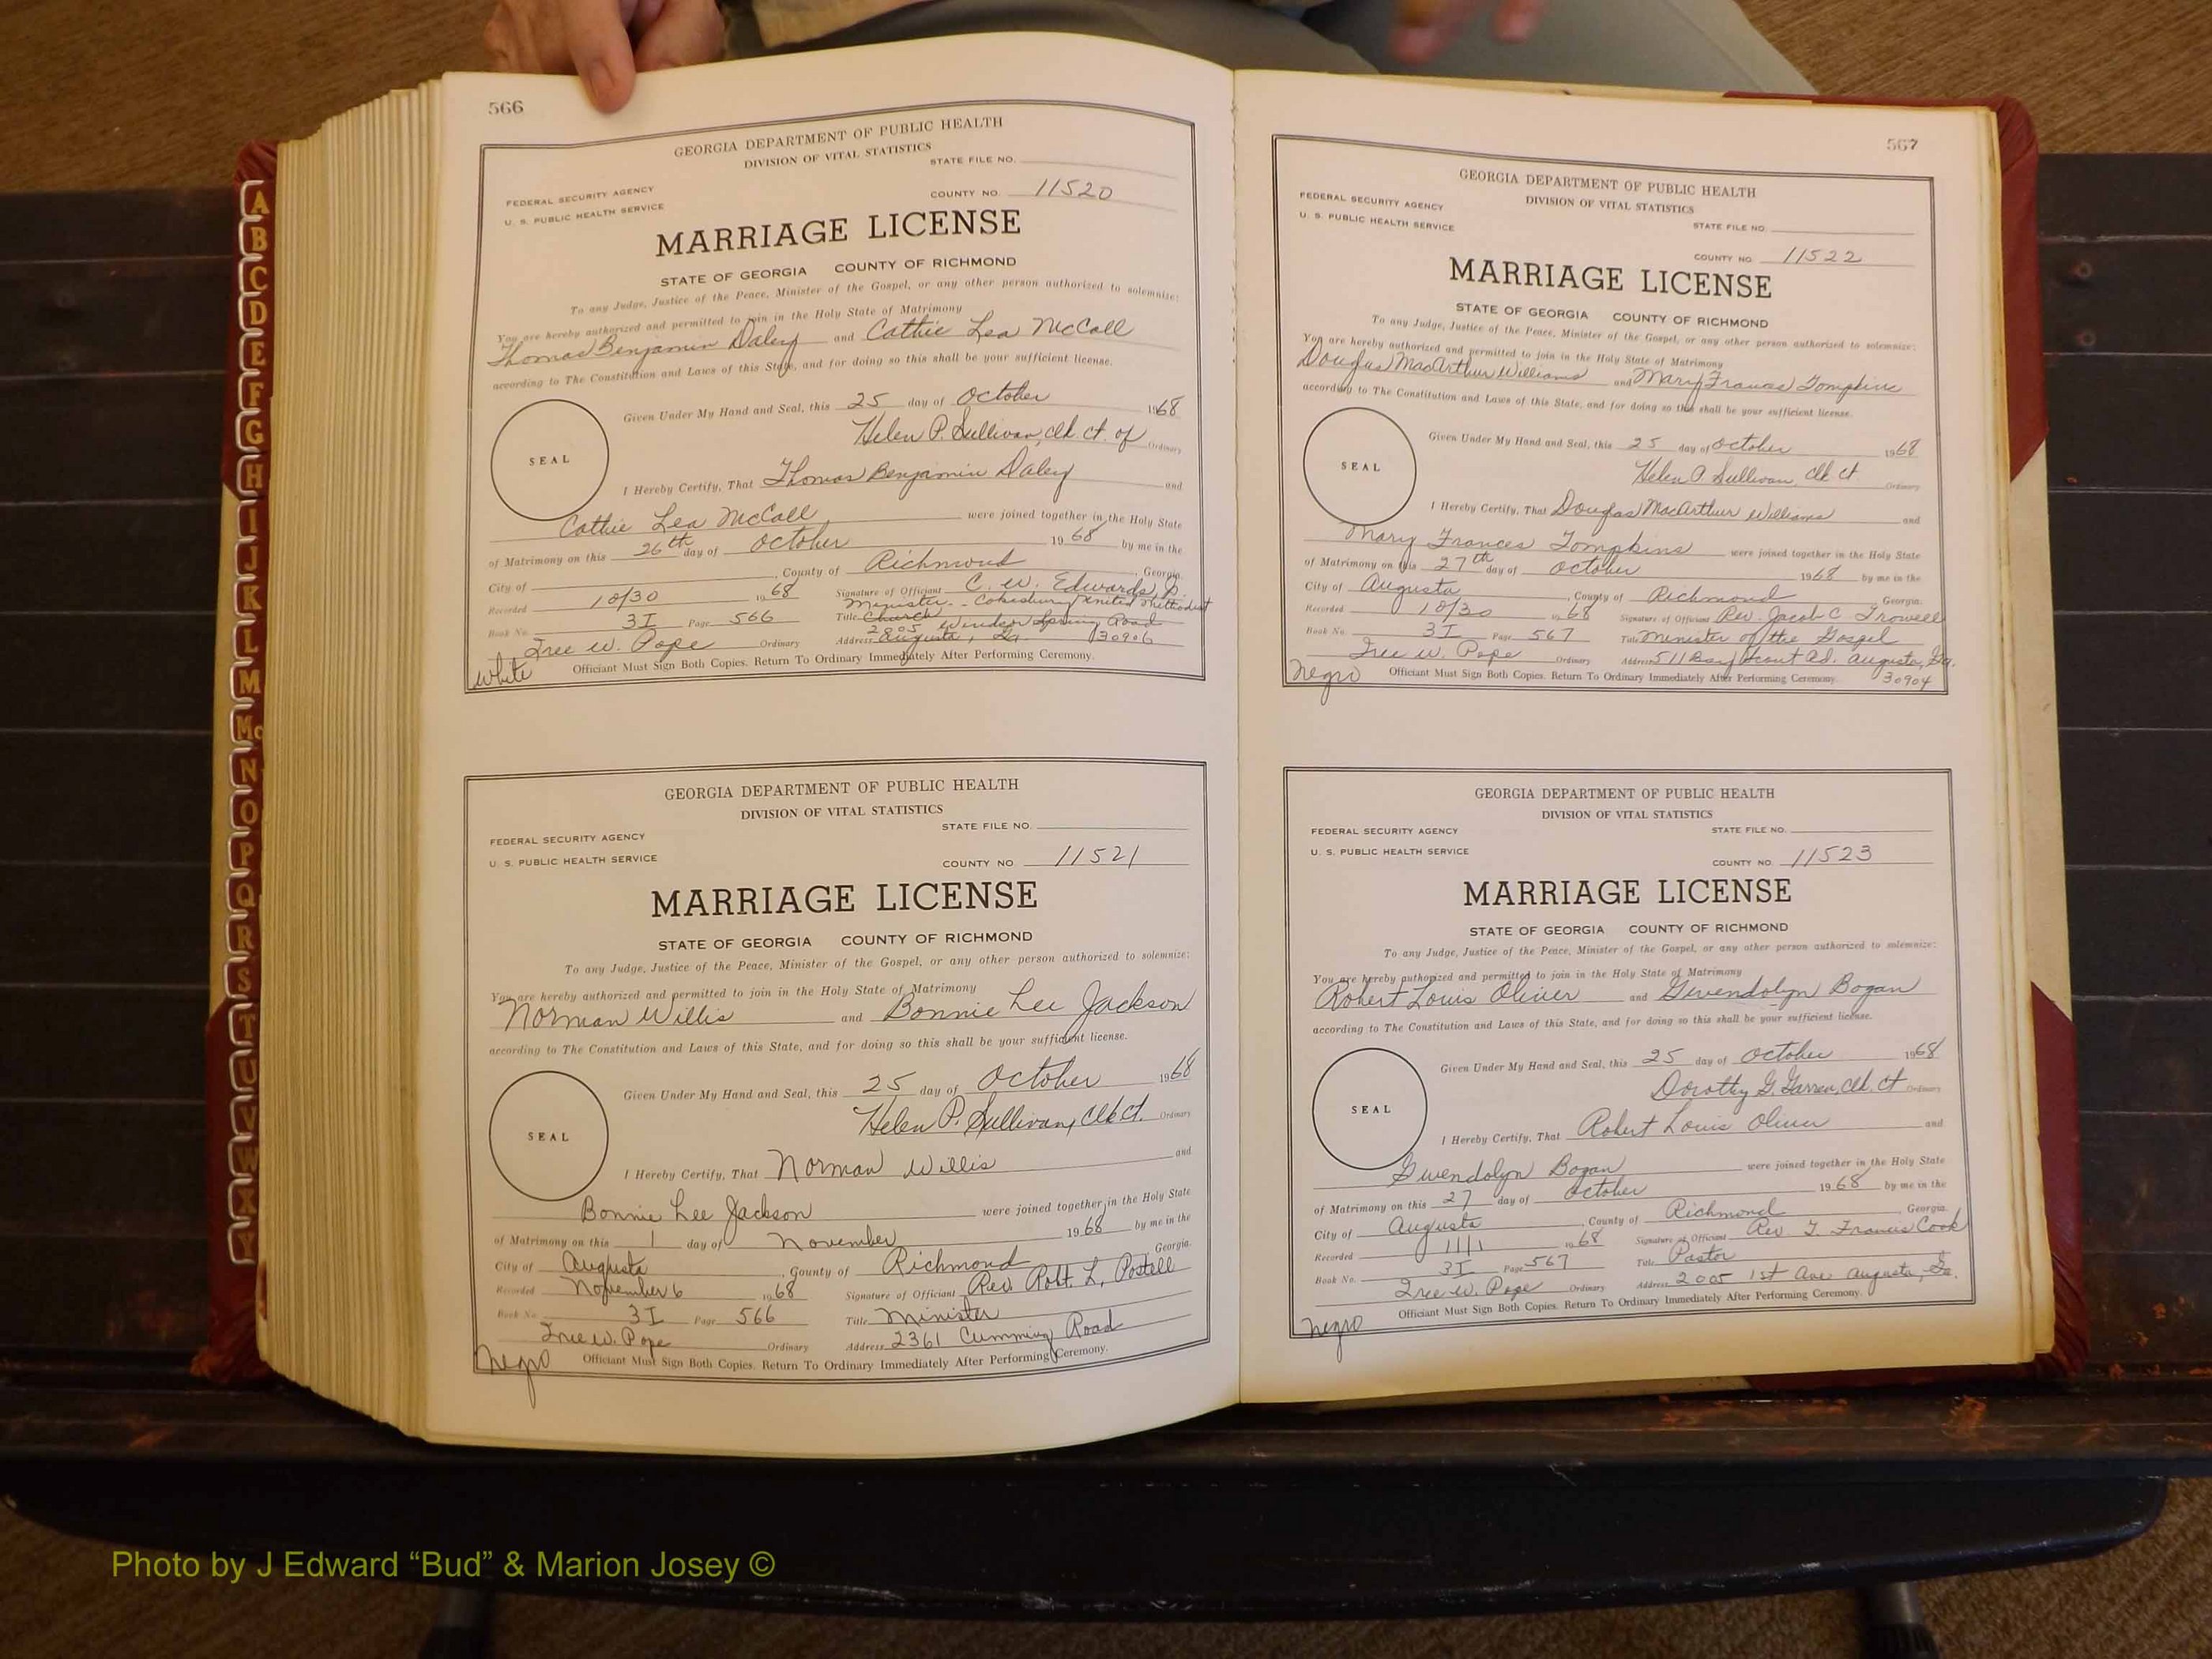 566
GEORGIA DEPARTMENT OF PUBLIC HEALTH
DIVISION OF VITAL STATISTICS
STATE FILE NO.
FEDERAL SECURITY AGENCY
U. S. PUBLIC HEALTH SERVICE
COUNTY NO. 11520
MARRIAGE LICENSE
STATE OF GEORGIA COUNTY OF RICHMOND
To any Judge, Justice of the Peace, Minister of the Gospel, or any other person authorized to solemnize:
You are hereby authorized and permitted to join in the Holy State of Matrimony
Thomas Benjamin Daley and Cathie Lea McCall
according to The Constitution and Laws of this State, and for doing so this shall be your sufficient license.
Given Under My Hand and Seal, this 25 day of October 1968
Helen P. Sullivan, clk. ct. of Ordinary
SEAL
I Hereby Certify, That Thomas Benjamin Daley and
Cathie Lea McCall were joined together in the Holy State
of Matrimony on this 26th day of October 1968 by me in the
City of , County of Richmond , Georgia.
Recorded 10/30 1968 Signature of Officiant C. W. Edwards,
Minister - Cokesbury United Methodist
Book No. 3I Page 566 Title Church
2805 Windsor Spring Road
Tree W. Pope Ordinary Address Augusta, Ga 30906
white Officiant Must Sign Both Copies. Return To Ordinary Immediately After Performing Ceremony.
GEORGIA DEPARTMENT OF PUBLIC HEALTH
DIVISION OF VITAL STATISTICS
STATE FILE NO.
FEDERAL SECURITY AGENCY
U. S. PUBLIC HEALTH SERVICE
COUNTY NO. 11521
MARRIAGE LICENSE
STATE OF GEORGIA COUNTY OF RICHMOND
To any Judge, Justice of the Peace, Minister of the Gospel, or any other person authorized to solemnize:
You are hereby authorized and permitted to join in the Holy State of Matrimony
Norman Willis and Bonnie Lee Jackson
according to The Constitution and Laws of this State, and for doing so this shall be your sufficient license.
Given Under My Hand and Seal, this 25 day of October 1968
Helen P. Sullivan, Clk Ct. Ordinary
SEAL
I Hereby Certify, That Norman Willis and
Bonnie Lee Jackson were joined together in the Holy State
of Matrimony on this 1 day of November 1968 by me in the
City of Augusta , County of Richmond , Georgia.
Recorded November 6 1968 Signature of Officiant Rev. Robt. L. Postell
Book No. 3I Page 566 Title Minister
Tree W. Pope Ordinary Address 2361 Cumming Road
negro Officiant Must Sign Both Copies. Return To Ordinary Immediately After Performing Ceremony.
567
GEORGIA DEPARTMENT OF PUBLIC HEALTH
DIVISION OF VITAL STATISTICS
FEDERAL SECURITY AGENCY
U. S. PUBLIC HEALTH SERVICE
STATE FILE NO.
COUNTY NO. 11522
MARRIAGE LICENSE
STATE OF GEORGIA COUNTY OF RICHMOND
To any Judge, Justice of the Peace, Minister of the Gospel, or any other person authorized to solemnize:
You are hereby authorized and permitted to join in the Holy State of Matrimony
Douglas MacArthur Williams and Mary Frances Tompkins
according to The Constitution and Laws of this State, and for doing so this shall be your sufficient license.
Given Under My Hand and Seal, this 25 day of October 1968
Helen P. Sullivan, Clk Ct. Ordinary
SEAL
I Hereby Certify, That Douglas MacArthur Williams and
Mary Frances Tompkins were joined together in the Holy State
of Matrimony on this 27th day of October 1968 by me in the
City of Augusta , County of Richmond , Georgia.
Recorded 10/30 1968 Signature of Officiant Rev. Jacob C. Trowell
Book No. 3I Page 567 Title Minister of the Gospel
Tree W. Pope Ordinary Address 511 Boy Scout Rd. Augusta, Ga.
30904
negro Officiant Must Sign Both Copies. Return To Ordinary Immediately After Performing Ceremony.
GEORGIA DEPARTMENT OF PUBLIC HEALTH
DIVISION OF VITAL STATISTICS
FEDERAL SECURITY AGENCY
STATE FILE NO.
U. S. PUBLIC HEALTH SERVICE
COUNTY NO. 11523
MARRIAGE LICENSE
STATE OF GEORGIA COUNTY OF RICHMOND
To any Judge, Justice of the Peace, Minister of the Gospel, or any other person authorized to solemnize:
You are hereby authorized and permitted to join in the Holy State of Matrimony
Robert Louis Oliver and Gwendolyn Bogan
according to The Constitution and Laws of this State, and for doing so this shall be your sufficient license.
Given Under My Hand and Seal, this 25 day of October 1968
Dorothy G. Clk. Ct Ordinary
SEAL
I Hereby Certify, That Robert Louis Oliver and
Gwendolyn Bogan were joined together in the Holy State
of Matrimony on this 27 day of October 1968 by me in the
City of Augusta , County of Richmond , Georgia.
Recorded 11/1 1968 Signature of Officiant Rev T. Francis Cook
Book No. 3I Page 567 Title Pastor
Tree W. Pope Ordinary Address 2005 1st Ave Augusta, Ga.
negro Officiant Must Sign Both Copies. Return To Ordinary Immediately After Performing Ceremony.
A
B
C
D
E
F
G
H
I
J
K
L
M
Mc
N
O
P
Q
R
S
T
U
V
W
X
Y
Photo by J Edward “Bud” & Marion Josey ©